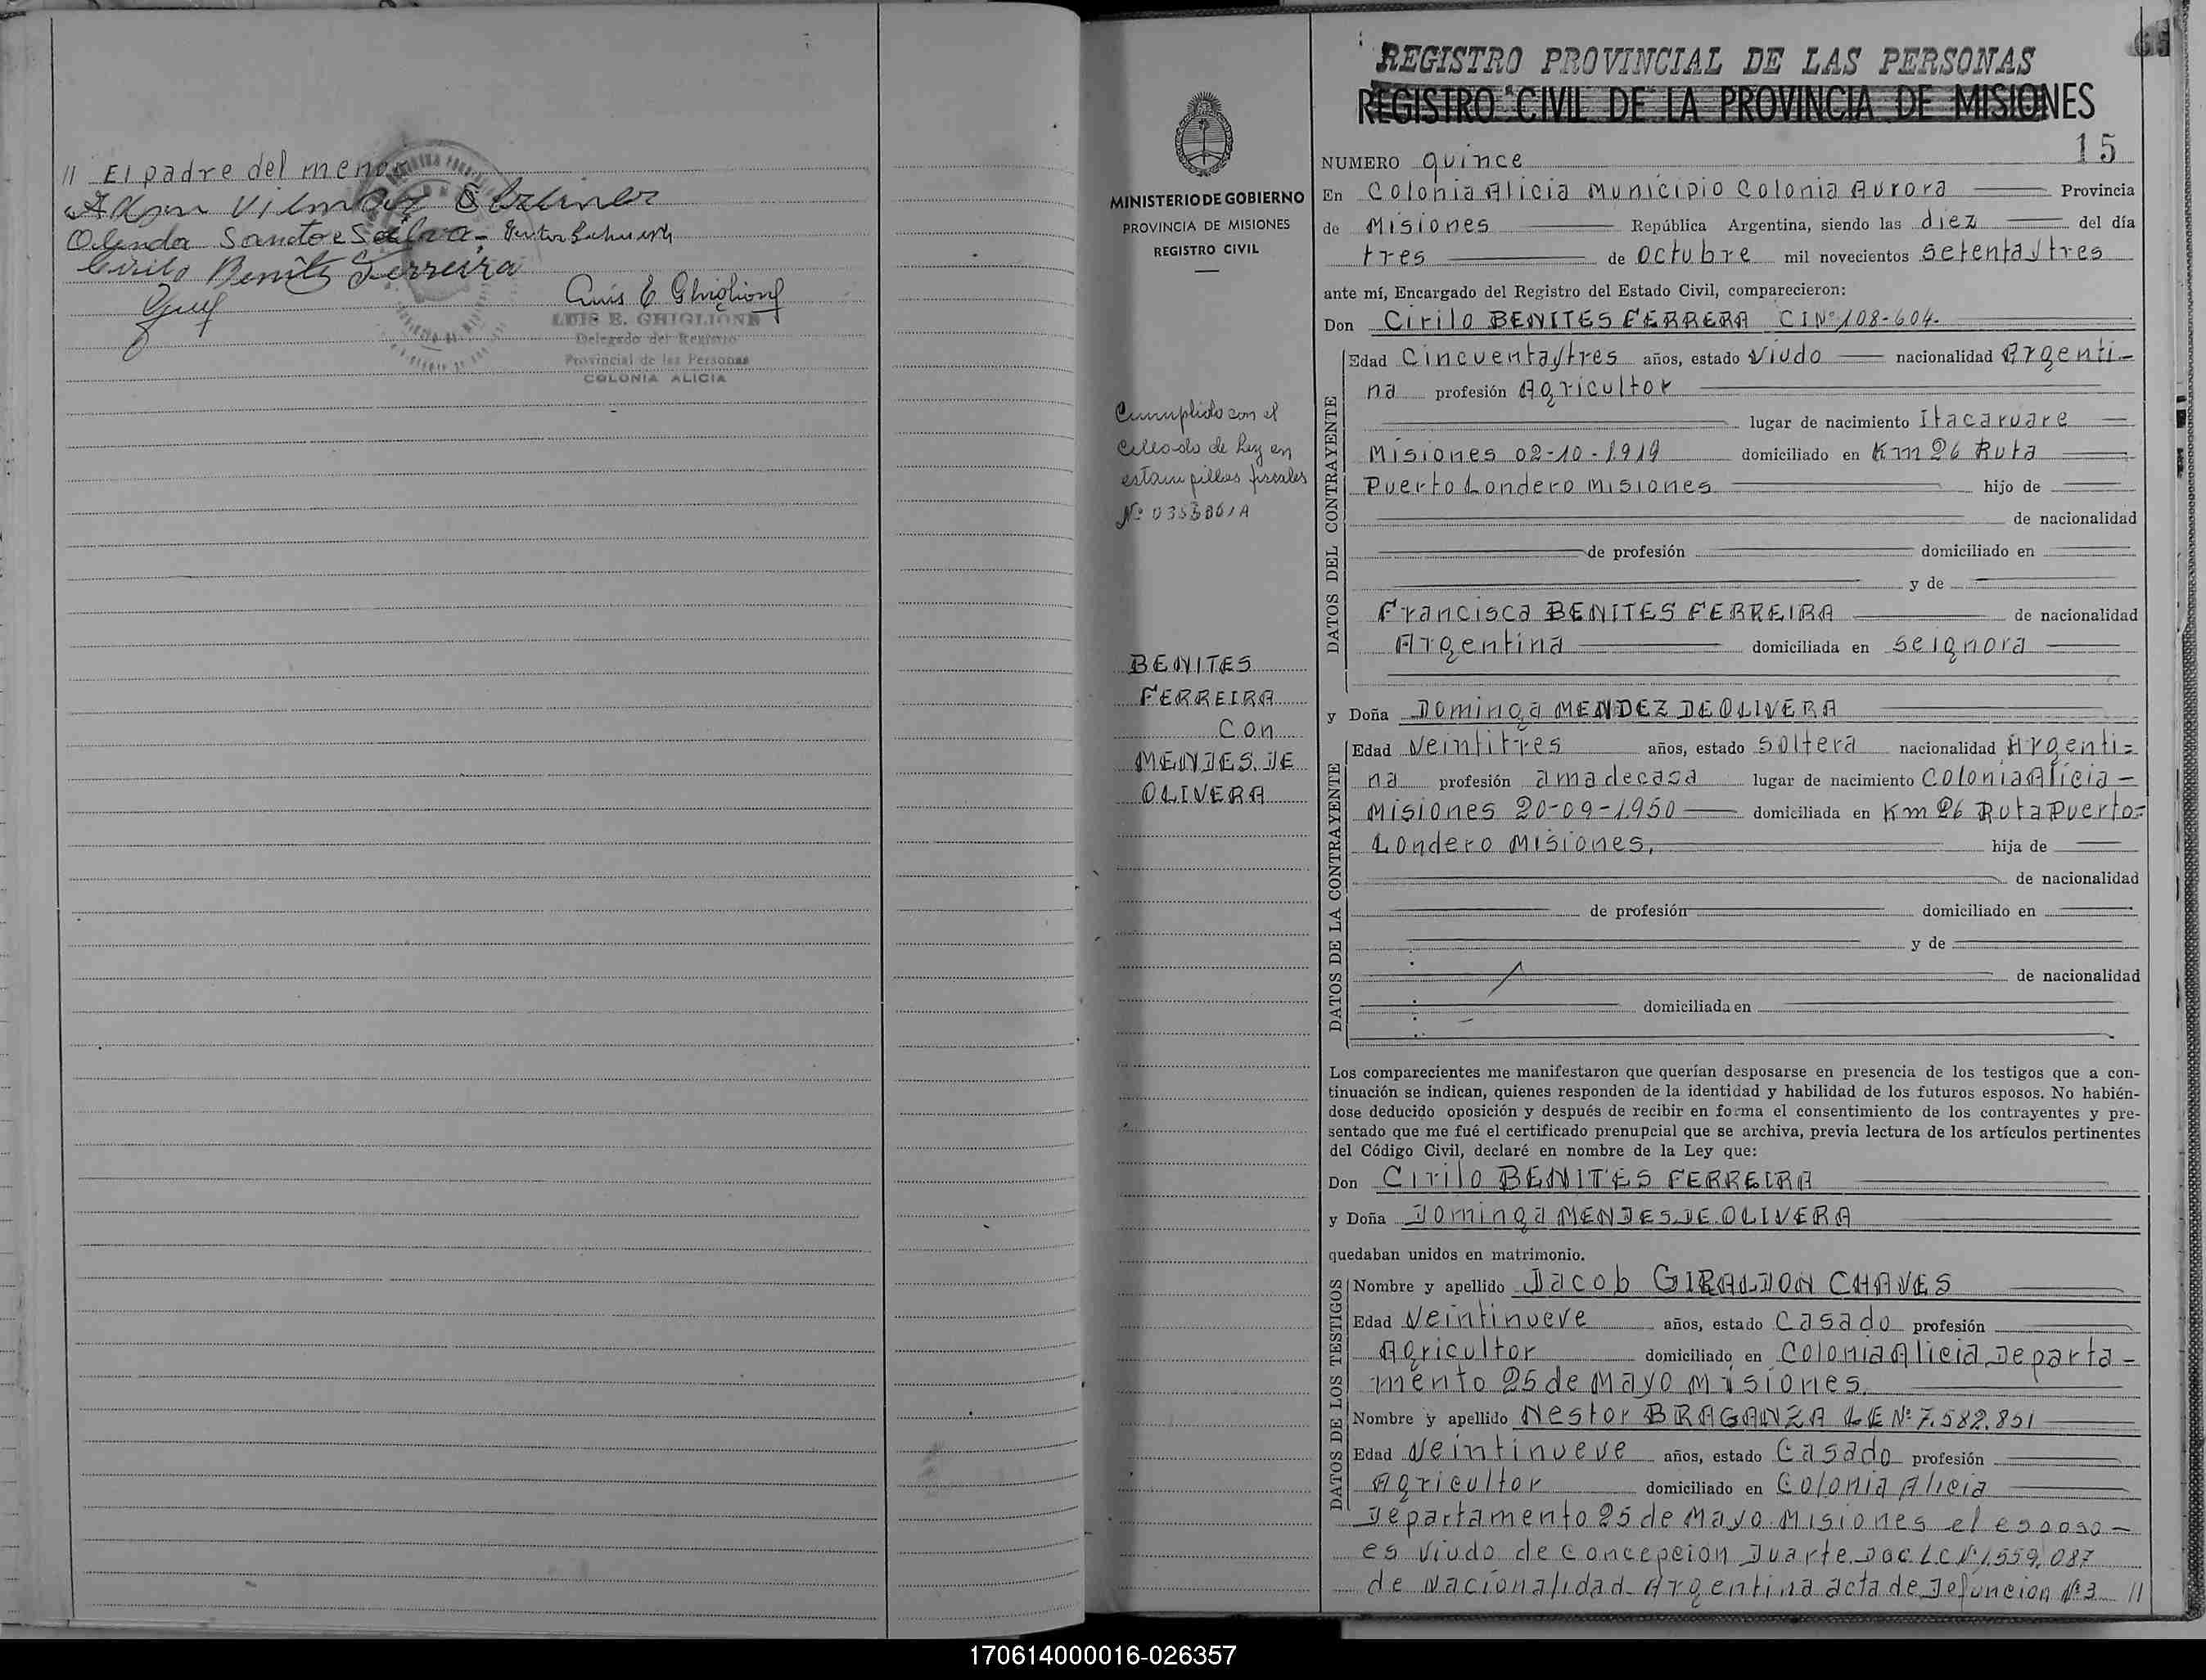 // El padre del menor
Olinda Santos
Cirilo Benites Ferreira
Luis E Ghiglione
LUIS E. GHIGLIONE
Delegado del Registro
Provincial de las Personas
COLONIA ALICIA
MINISTERIO DE GOBIERNO
PROVINCIA DE MISIONES
REGISTRO CIVIL
Cumplido con el
de Ley en
estampillas fiscales
BENITES
FERREIRA
Con
MENDES DE
OLIVERA
REGISTRO PROVINCIAL DE LAS PERSONAS
REGISTRO CIVIL DE LA PROVINCIA DE MISIONES
15
NUMERO quince
En Colonia Alicia Municipio Colonia Aurora Provincia
de Misiones República Argentina, siendo las diez del día
tres de Octubre mil novecientos setentaytres
ante mí, Encargado del Registro del Estado Civil, comparecieron:
Don Cirilo BENITES FERRERA CI Nº 108-604.
DATOS DEL CONTRAYENTE
Edad Cincuentaytres años, estado Viudo nacionalidad Argenti-
na profesión Agricultor
lugar de nacimiento Itacaruare
Misiones 02-10-1919 domiciliado en Km 26 Ruta
Puerto Londero Misiones hijo de
de nacionalidad
de profesión domiciliado en
y de
Francisca BENITES FERREIRA de nacionalidad
Argentina domiciliada en seignora
y Doña Dominga MENDEZ DE OLIVERA
DATOS DE LA CONTRAYENTE
Edad Veintitres años, estado Soltera nacionalidad Argenti=
na profesión ama de casa lugar de nacimiento Colonia Alicia-
Misiones 20-09-1950 domiciliada en Km 26 Ruta Puerto=
Londero Misiones, hija de
de nacionalidad
de profesión domiciliado en
y de
de nacionalidad
domiciliada en
Los comparecientes me manifestaron que querían desposarse en presencia de los testigos que a con-
tinuación se indican, quienes responden de la identidad y habilidad de los futuros esposos. No habién-
dose deducido oposición y después de recibir en forma el consentimiento de los contrayentes y pre-
sentado que me fué el certificado prenupcial que se archiva, previa lectura de los artículos pertinentes
del Código Civil, declaré en nombre de la Ley que:
Don Cirilo BENITES FERREIRA
y Doña Dominga MENDES DE OLIVERA
quedaban unidos en matrimonio.
DATOS DE LOS TESTIGOS
Nombre y apellido Jacob GIRALDON CHAVES
Edad Veintinueve años, estado Casado profesión
Agricultor domiciliado en Colonia Alicia Departa-
mento 25 de Mayo Misiones.
Nombre y apellido Nestor BRAGANZA LE Nº 7.582.851
Edad Veintinueve años, estado Casado profesión
Agricultor domiciliado en Colonia Alicia
Departamento 25 de Mayo Misiones el esposo-
es Viudo de Concepcion Duarte Doc LC Nº 1.559.087
de Nacionalidad Argentina acta de Defuncion Nº 3 //
170614000016-026357